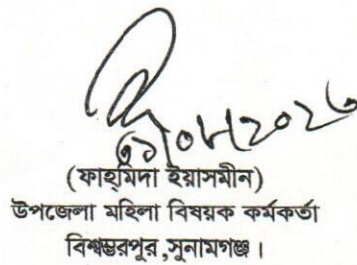 (ফাহ্‌মিদা ইয়াসমীন)
উপজেলা মহিলা বিষয়ক কর্মকর্তা
বিশ্বম্ভরপুর,সুনামগঞ্জ।